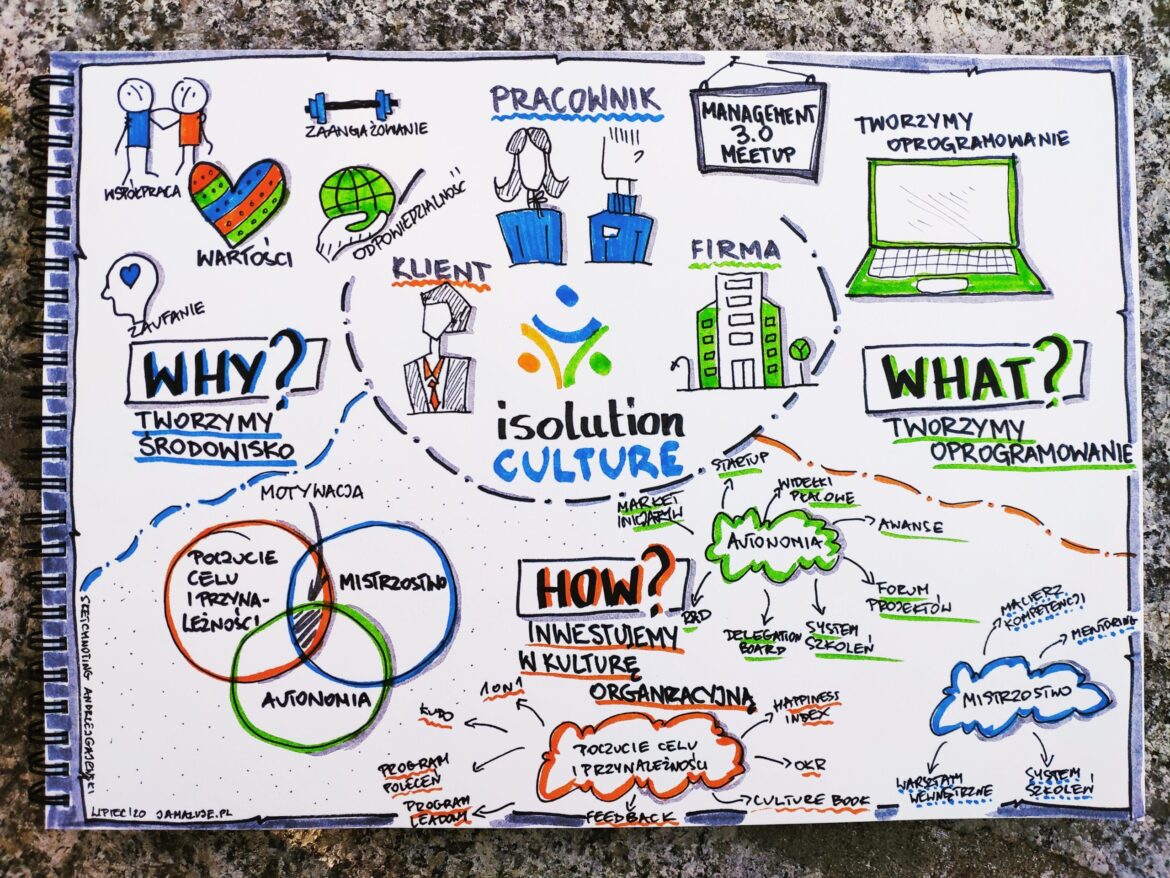 WSPÓŁPRACA
ZAANGAŻOWANIE
WARTOŚCI
ODPOWIEDZIALNOŚĆ
ZAUFANIE
PRACOWNIK
KLIENT
FIRMA
MANAGEMENT
3.0
MEETUP
TWORZYMY
OPROGRAMOWANIE
isolution
CULTURE
WHY?
TWORZYMY
ŚRODOWISKO
WHAT?
TWORZYMY
OPROGRAMOWANIE
MOTYWACJA
POCZUCIE
CELU
I PRZYNA-
LEŻNOŚCI
MISTRZOSTWO
AUTONOMIA
HOW?
INWESTUJEMY
W KULTURĘ
ORGANIZACYJNĄ
STARTUP
MARKET
INICJATYW
WIDEŁKI
PŁACOWE
AUTONOMIA
AWANSE
FORUM
PROJEKTÓW
SYSTEM
SZKOLEŃ
DELEGATION
BOARD
RAD
1 ON 1
KUDO
PROGRAM
POLECEŃ
PROGRAM
LEADOW
FEEDBACK
POCZUCIE CELU
I PRZYNALEŻNOŚCI
HAPPINESS
INDEX
OKR
CULTURE BOOK
MACIERZ
KOMPETENCJI
MENTORING
MISTRZOSTWO
WARSZTATY
WEWNĘTRZNE
SYSTEM
SZKOLEŃ
SKETCHNOTING ANDRZEJ
LIPIEC/20 JAMAZUJE.PL